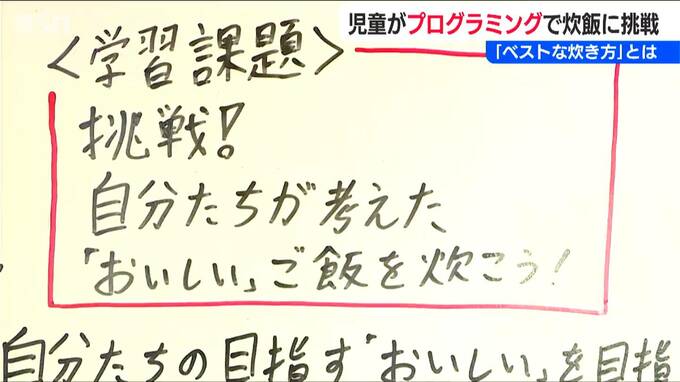 児童がプログラミングで炊飯に挑戦
「ベストな炊き方」とは
<学習課題>
挑戦!
自分たちが考えた
「おいしい」ご飯を炊こう!
自分たちの目指す「おいしい」を目指